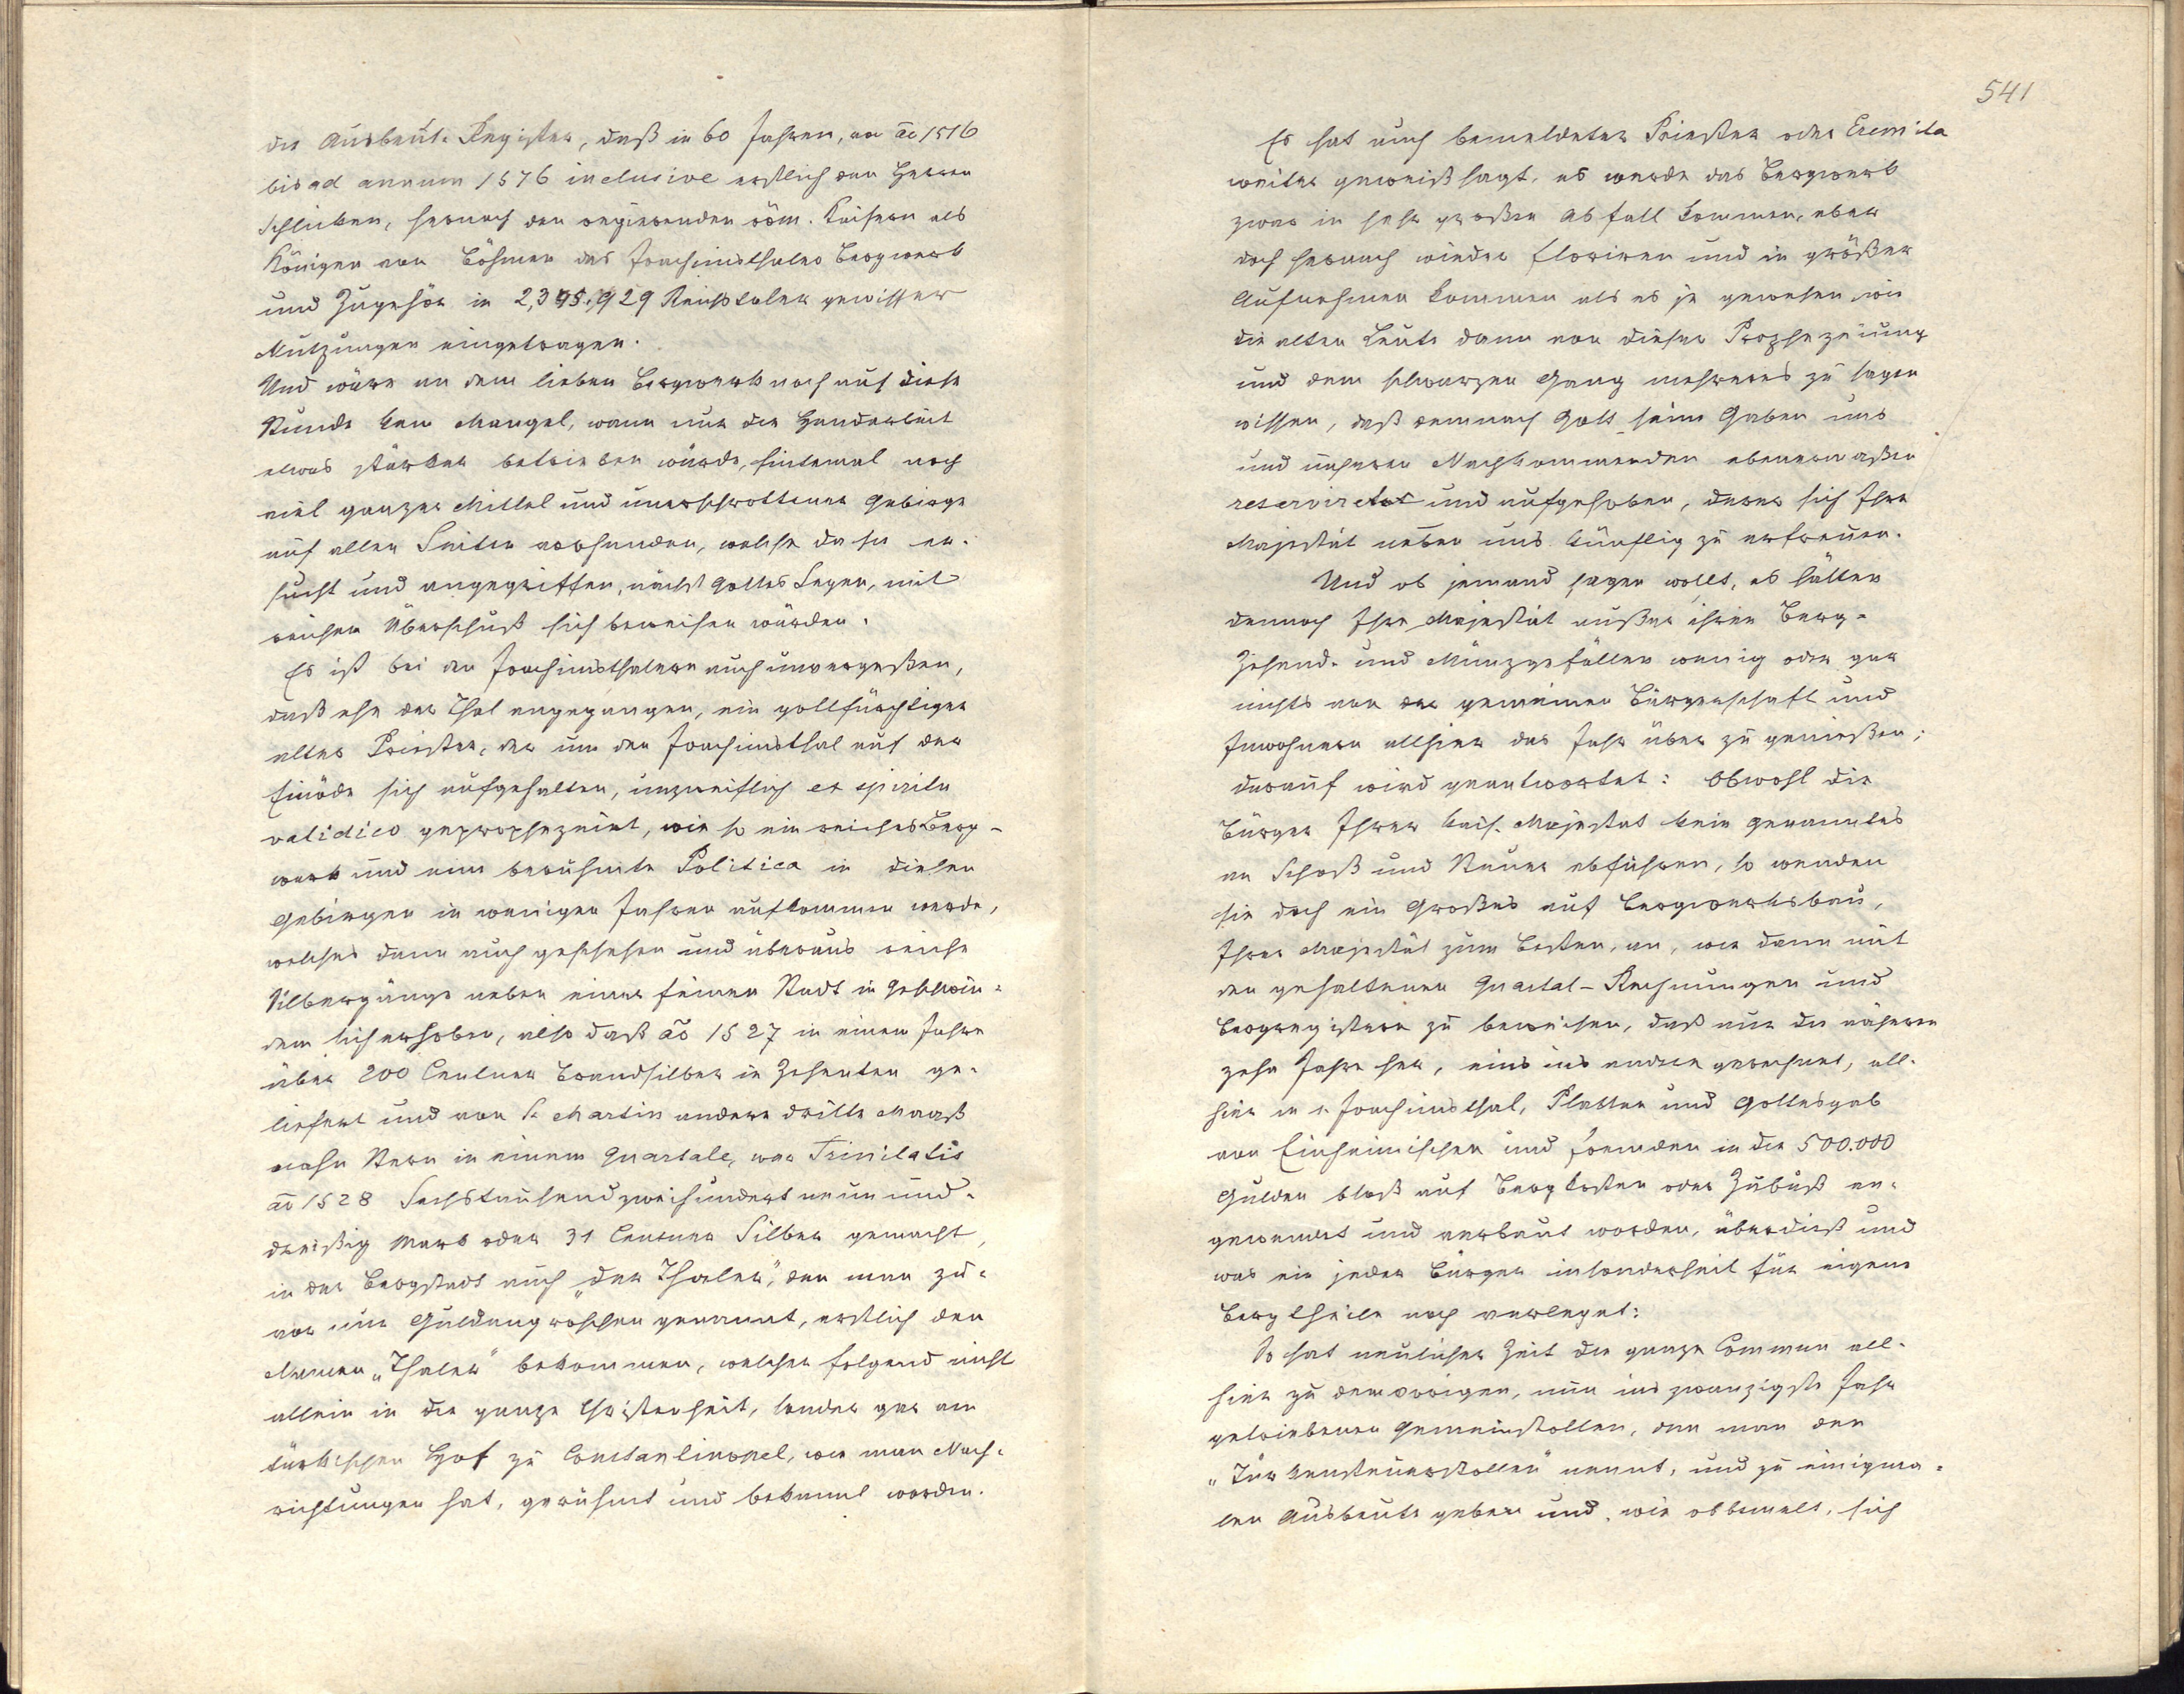 die Ausbeut-Register, daß in 60 Jahren, von āo 1516
bis ad annum 1576 inclusive erstlich den Herren
Schlicken, hernach den regierenden röm. Kaisern als
Königen von Böhmen das Joachimsthaler Bergwerk
und Zugehör in 2,395.929 Reichstaler gewisser
Nutzungen eingetragen.
Und wäre an dem lieben Bergwerk noch auf diese
Stunde kein Mangel, wann nur die Handarbeit
etwas stärker betrieben würde, sintemal noch
viel ganzer Mittel und unverschrottener Gebirge
auf allen Seiten vorhanden, welche da sie er-
sucht und angegriffen, nächst Gottes Segen, mit
reichen Überschuß sich beweisen würden.
Es ist bei den Joachimsthalern auch unvergeßen,
daß ehe der Thal angegangen, ein gottfürchtiger
alter Priester, der um den Joachimsthal auf der
Einöde sich aufgehalten, unzweiflich ex spiritu
validico geprophezeiet, wie so ein reiches Berg-
werk und eine berühmte Politica in diesen
Gebirgen in wenigen Jahren aufkommen werde,
welches dann auch geschehen und überaus reiche
Silbergänge neben einer feinen Stadt in Geschwin-
dem sich erhoben, also daß āo 1527 in einem Jahre
über 200 Centner Brandsilber in Zehenten ge-
liefert und von St. Martin andere dritte Maaß
nahe Stern in einem Quartale, war Trinitatis
āo 1528 Sechstausendzweihundertneunund-
dreißig Mark oder 31 Centner Silber gemacht,
in der Bergstadt auch „der Thaler", den man zu-
vor nur Guldengroschen genannt, erstlich den
Namen „Thaler" bekommen, welcher folgend nicht
allein in die ganze Christenheit, sonder gar am
türkischen Hof zu Constantinopel, wie man Nach-
richtungen hat, gerühmt und bekannt worden.
541
Es hat auch bemeldeter Priester oder Eremita
weiter geweißsagt, es werde das Bergwerk
zwar in sehr großen Abfall kommen, aber
doch hernach wieder floriren und in größer
Aufnehmen kommen als es je gewesen, wie
die alten Leute dann von dieser Prophezeiung
und dem schwarzen Gang mehreres zu sagen
wissen, daß demnach Gott seine Gaben uns
und unseren Nachkommenden ebenermaßen
reserviret und aufgehoben, derer sich Ihre
Majestät neben uns künftig zu erfreuen.
Und ob jemand sagen wollt, es hätten
dennoch Ihre Majestät außer ihren Berg-
Zehend- und Münzgefällen wenig oder gar
nichts von der gemeinen Bürgerschaft und
Inwohnern allhier das Jahr über zu genießen;
darauf wird geantwortet: Obwohl die
Bürger Ihrer kais. Majestat kein genanntes
an Schoß und Steuer abführen, so wenden
sie doch ein Großes auf Bergwerksbau,
Ihrer Majestät zum Besten, an, wie dann mit
den gehaltenen Quartal-Rechnungen und
Bergregistern zu beweisen, daß nur die näheren
zehn Jahre her, eins ins andere gerechnet, all-
hier in s. Joachimsthal, Platten und Gottesgab
von Einheimischen und fremden in die 500.000
Gulden bloß auf Bergkosten oder Zubuß an-
gewendet und verbaut worden, überdieß und
was ein jeder Bürger insonderheit für eigene
Bergtheile noch verleget:
So hat neulicher Zeit die ganze Commun all-
hier zu dem vorigen, nun ins zwanzigste Jahr
getriebenen Gemeinstollen, den man den
„Türkensteuerstollen" nennt, und zu einigma-
len Ausbeute geben und, wie obbemelt, sich